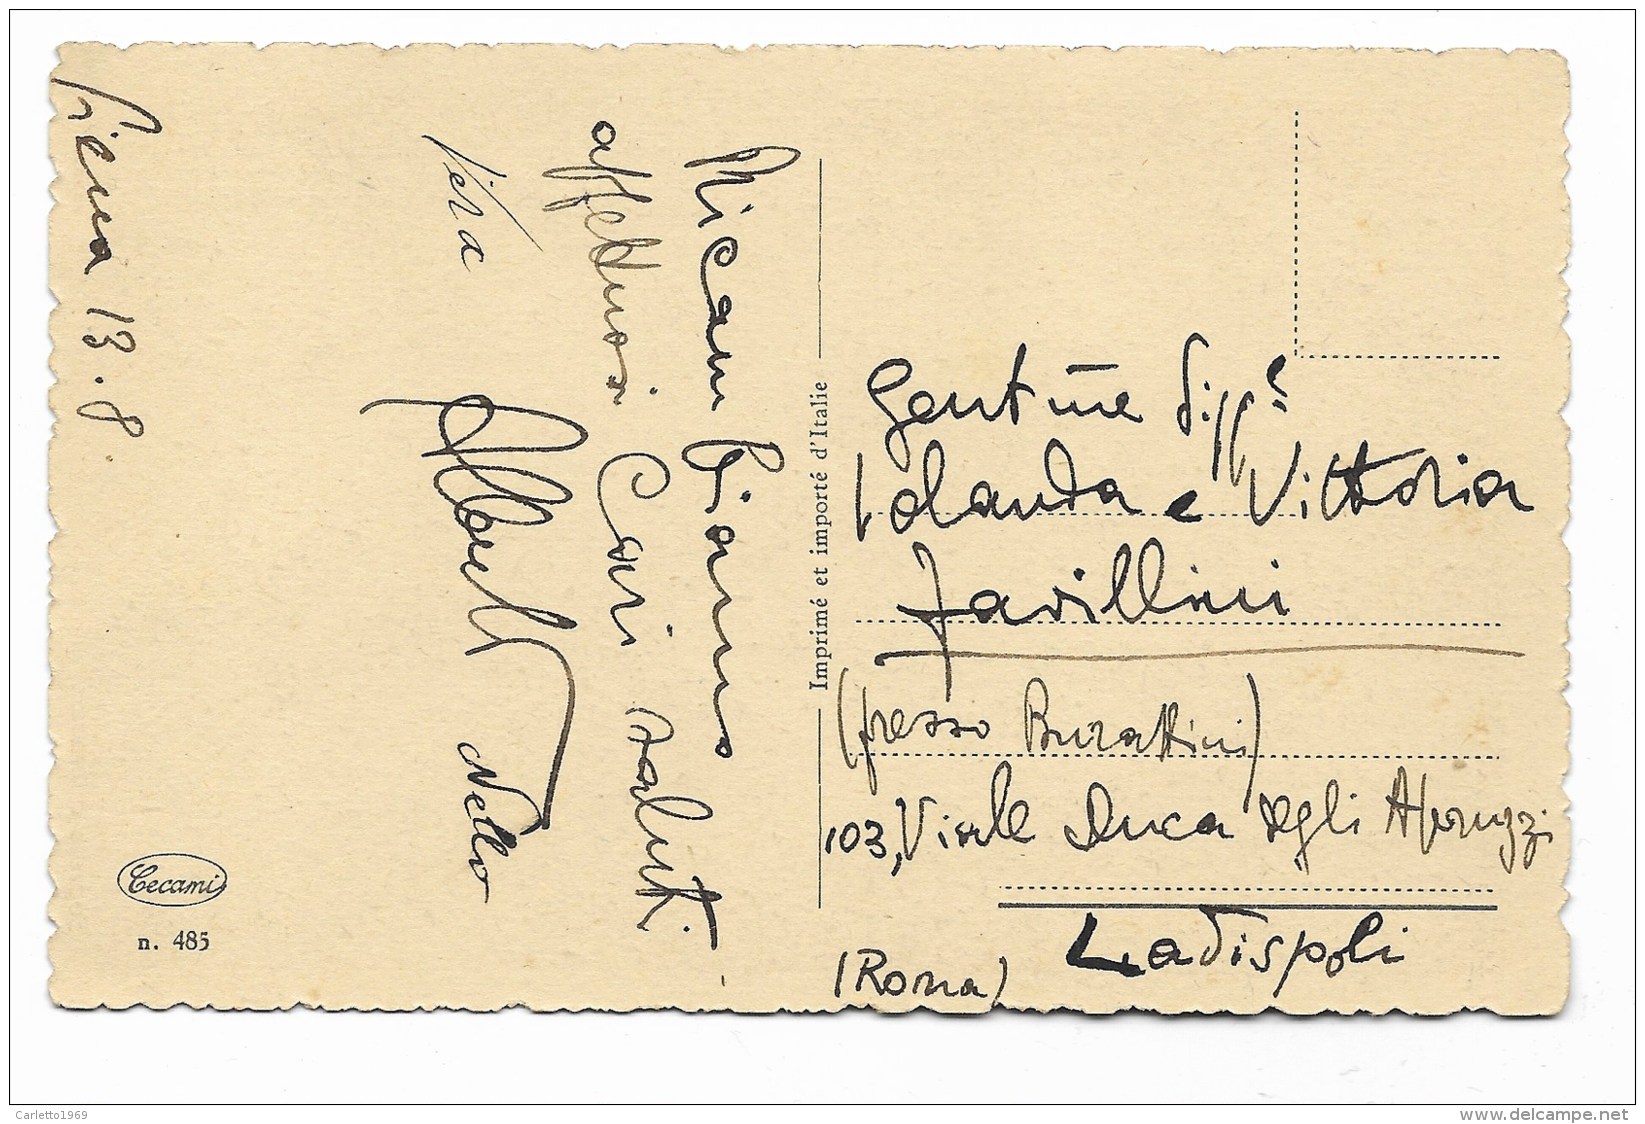 Siena 13.8.
Ricambiamo
affettuosi cari saluti
Vera
Nello
Cecami
n. 485
Imprimé et importé d'Italie
Gent me Sigg.e
Iolanda e Vittoria
Favillini
(presso Burattini)
103, Viale Duca degli Abruzzi
Ladispoli
(Roma)
Carletto1969
www.delcampe.net